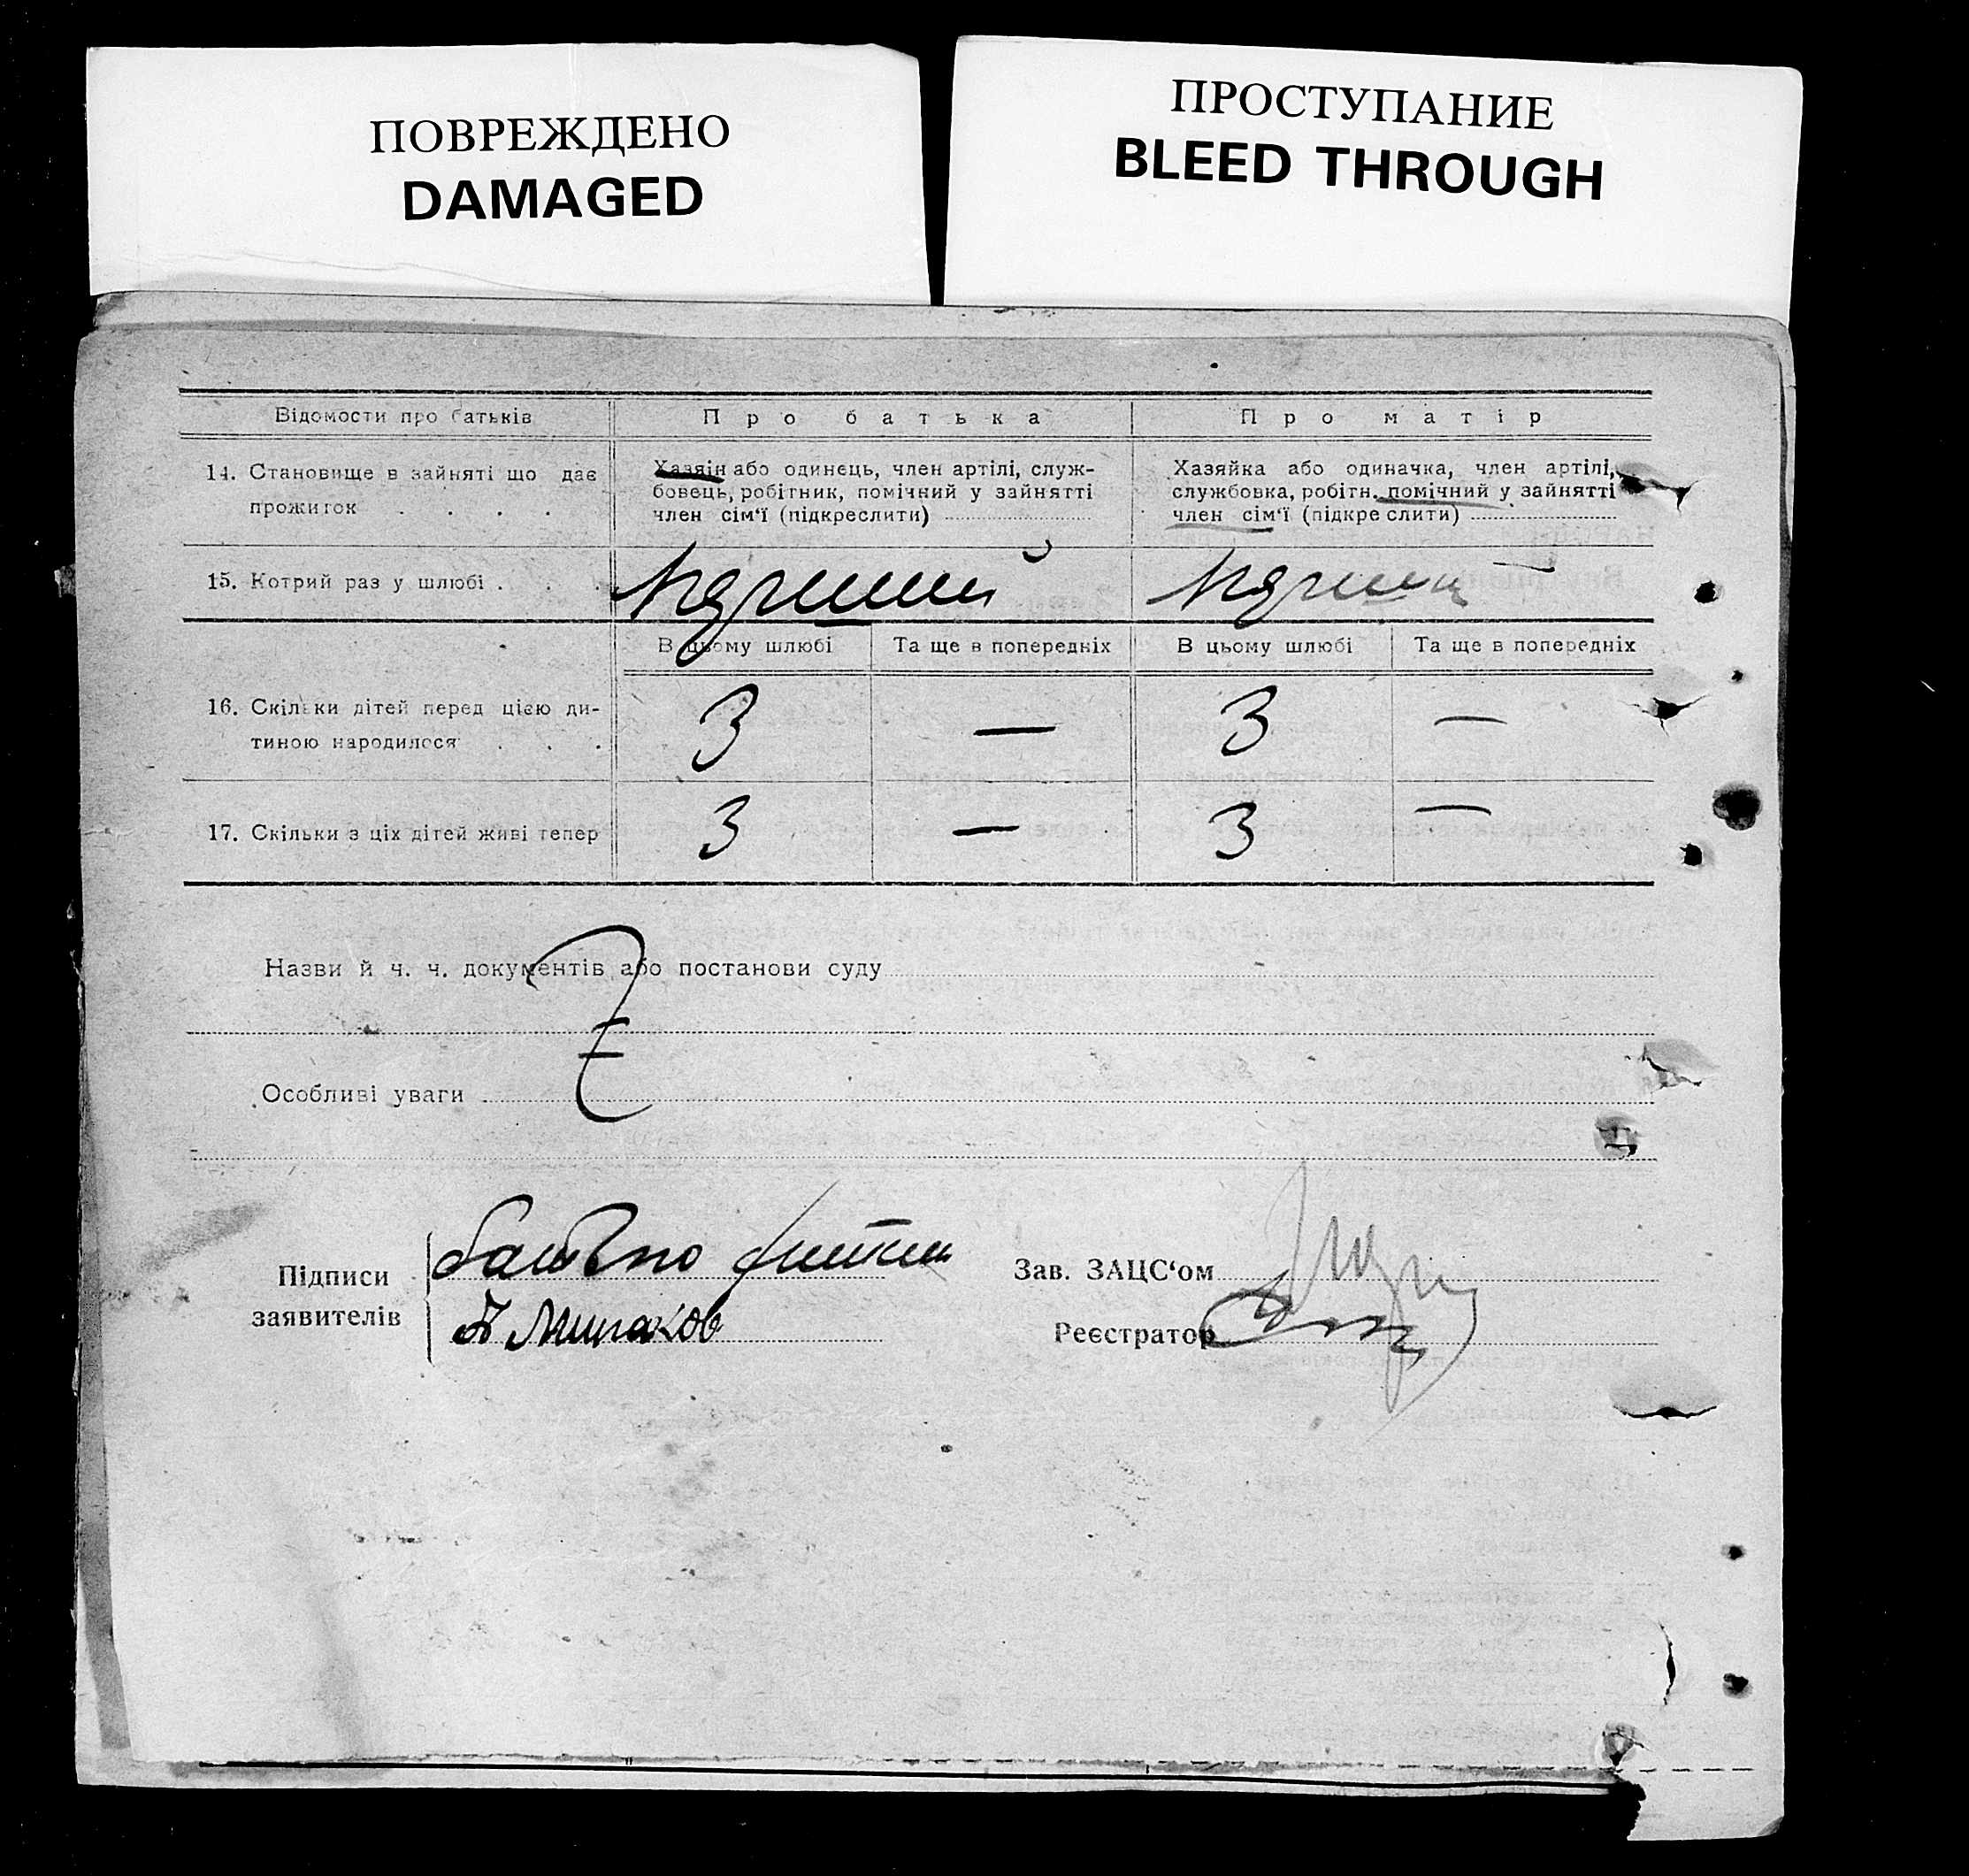 ПОВРЕЖДЕНО
DAMAGED
ПРОСТУПАНИЕ
BLEED THROUGH
Відомости про батьків
Про батька
Про матір
14. Становище в зайняті що дає
прожиток . . . .
Хазяін або одинець, член артілі, служ-
бовець, робітник, помічний у зайнятті
член сім‘ї (підкреслити)
Хазяйка або одиначка, член артілі,
службовка, робітн. помічний у зайнятті
член сім‘ї (підкреслити)
15. Котрий раз у шлюбі . . .
В цьому шлюбі
Та ще в попередніх
В цьому шлюбі
Та ще в попередніх
16. Скільки дітей перед цією ди-
тиною народилося . . .
3
—
3
—
17. Скільки з ціх дітей живі тепер
3
—
3
—
Назви й ч. ч. документів або постанови суду
Особливі уваги
Підписи
заявителів
Зав. ЗАЦС‘ом
Реєстратор